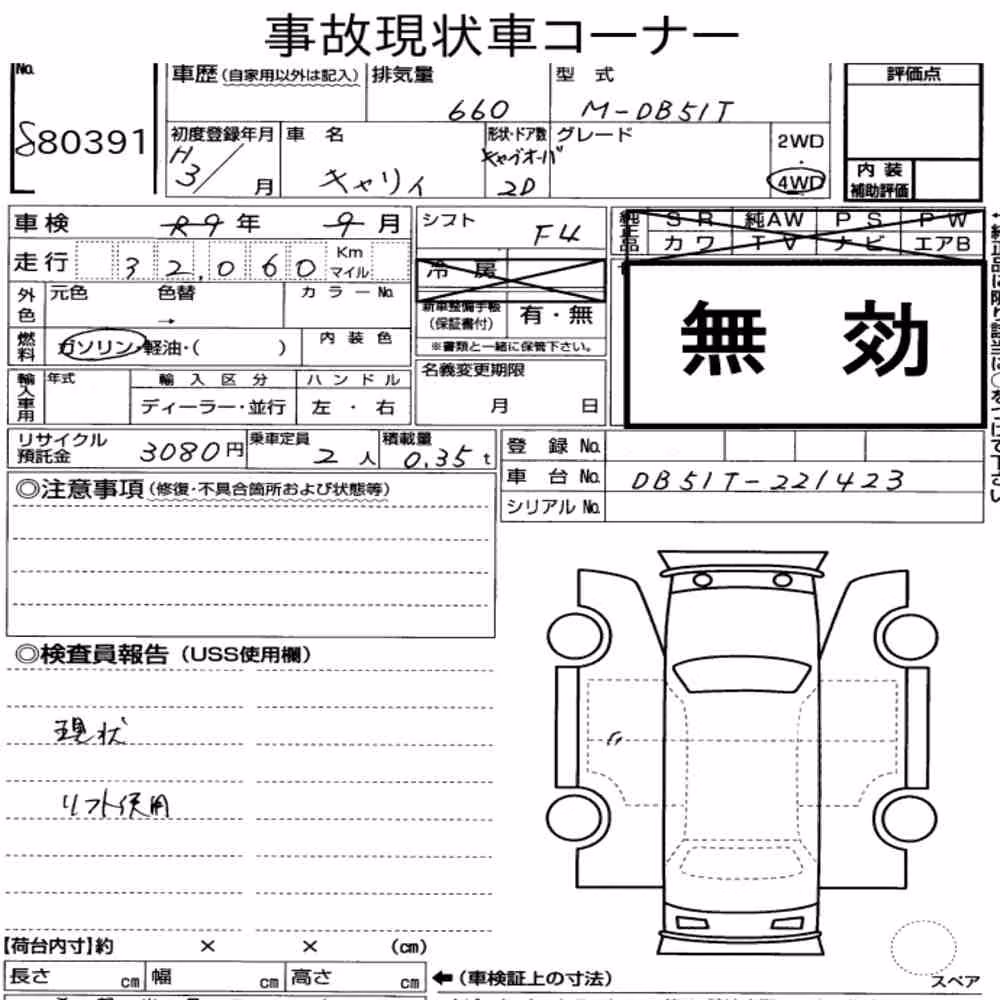 事故現状車コーナー
No. 車歴 (自家用以外は記入) 排気量 型式 評価点
660 M-DB51T
880391
初度登録年月 車名 形状・ドア数 グレード 2WD・4WD
H3/月 キャリィ キャブオーバ 2D
内装
補助評価
車検 R9年 9月 シフト F4
走行 32,060 Km マイル
冷房
純正品 SR 純AW PS PW
カワ TV ナビ エアB
無効
外色 元色 色替 → カラーNo.
新車整備手帳
(保証書付) 有・無
※書類と一緒に保管下さい。
燃料 ガソリン・軽油・( ) 内装色
名義変更期限
月 日
輸入車用 年式 輸入区分 ハンドル
ディーラー・並行 左・右
リサイクル
預託金 3080円 乗車定員 2人 積載量 0.35t
登録No.
車台No. DB51T-221423
シリアルNo.
◎注意事項 (修復・不具合箇所および状態等)
◎検査員報告 (USS使用欄)
現状
リフト使用
【荷台内寸】約 × × (cm)
長さ cm 幅 cm 高さ cm ←(車検証上の寸法)
スペア